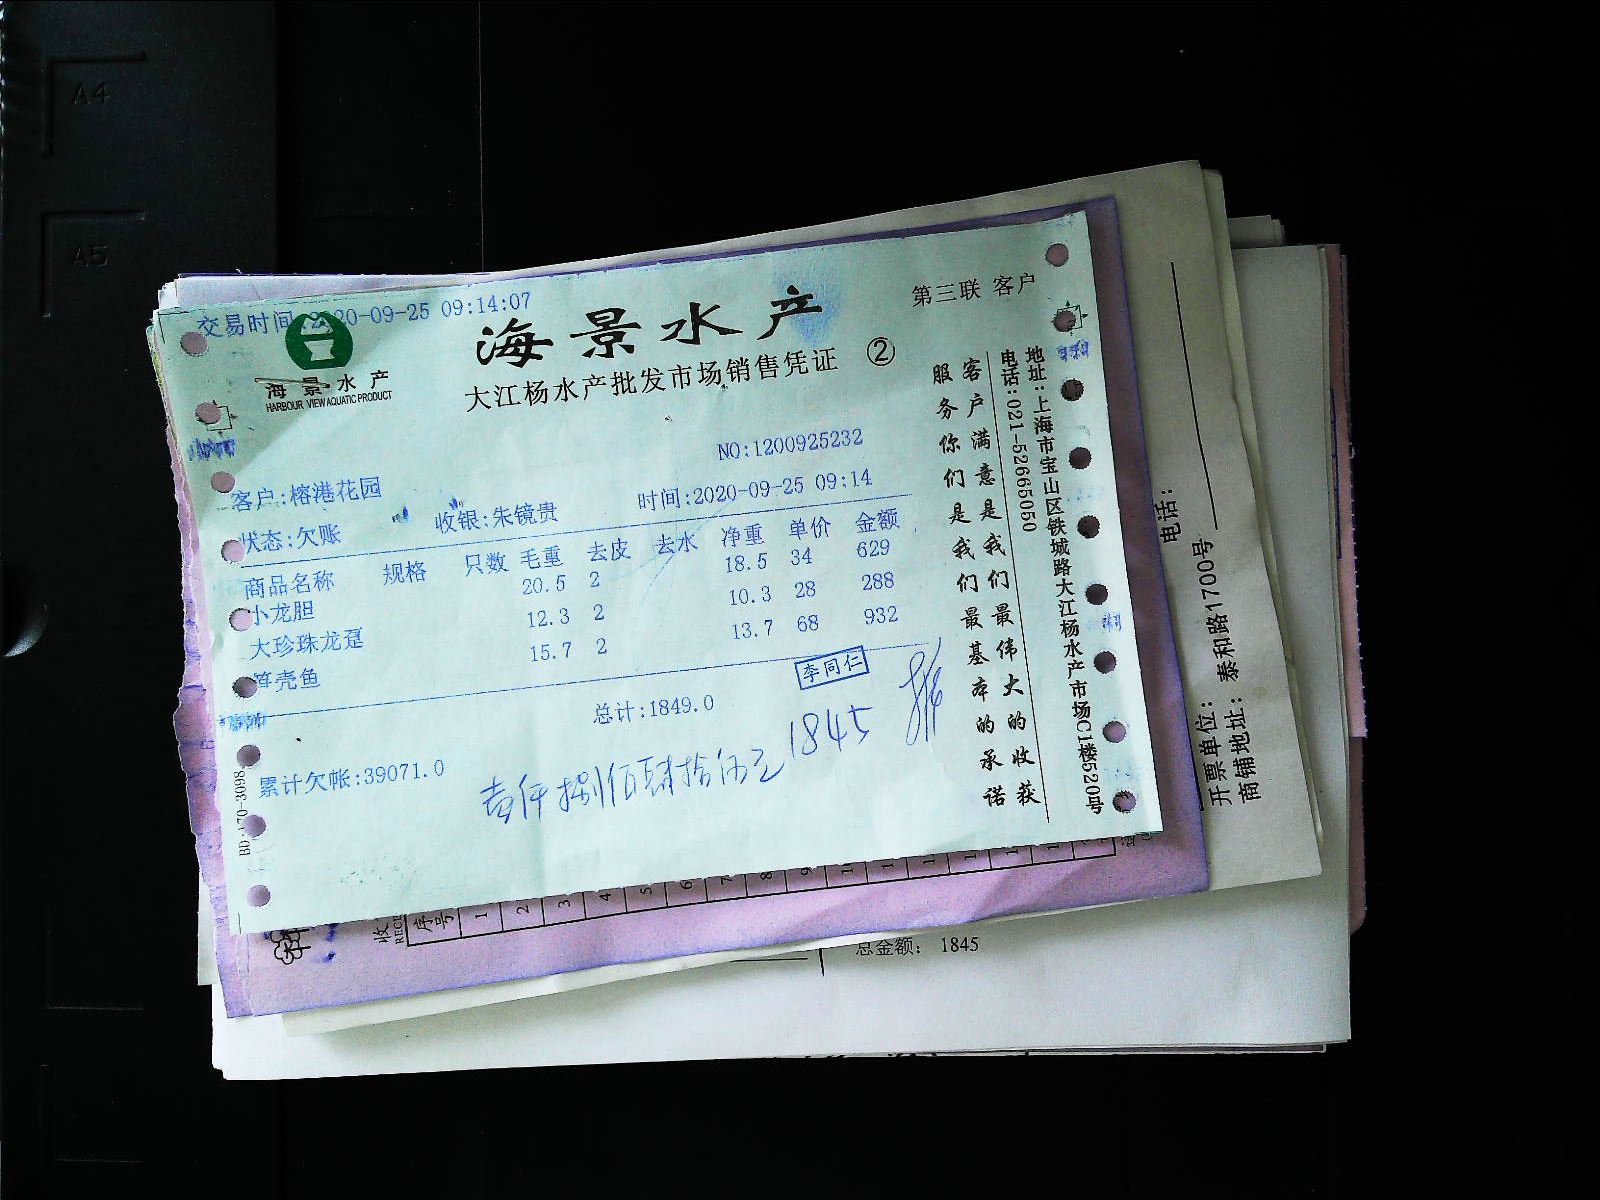 A4
A5
交易时间:2020-09-25 09:14:07
海景水产
HARBOUR VIEW AQUATIC PRODUCT
海景水产
大江杨水产批发市场销售凭证 ②
第三联 客户
NO:1200925232
客户:榕港花园
时间:2020-09-25 09:14
状态:欠账 收银:朱镜贵
商品名称 规格 只数 毛重 去皮 去水 净重 单价 金额
小龙胆 20.5 2 18.5 34 629
大珍珠龙趸 12.3 2 10.3 28 288
笋壳鱼 15.7 2 13.7 68 932
李同仁
总计:1849.0
累计欠帐:39071.0
壹仟捌佰肆拾伍元 1845
客户满意是我们最伟大的收获
服务你们是我们最基本的承诺
地址:上海市宝山区铁城路大江杨水产市场C1楼520号
电话:021-52665050
序号
1 2 3 4 5 6 7 8 9
总金额: 1845
电话:
开票单位:
商铺地址: 泰和路1700号